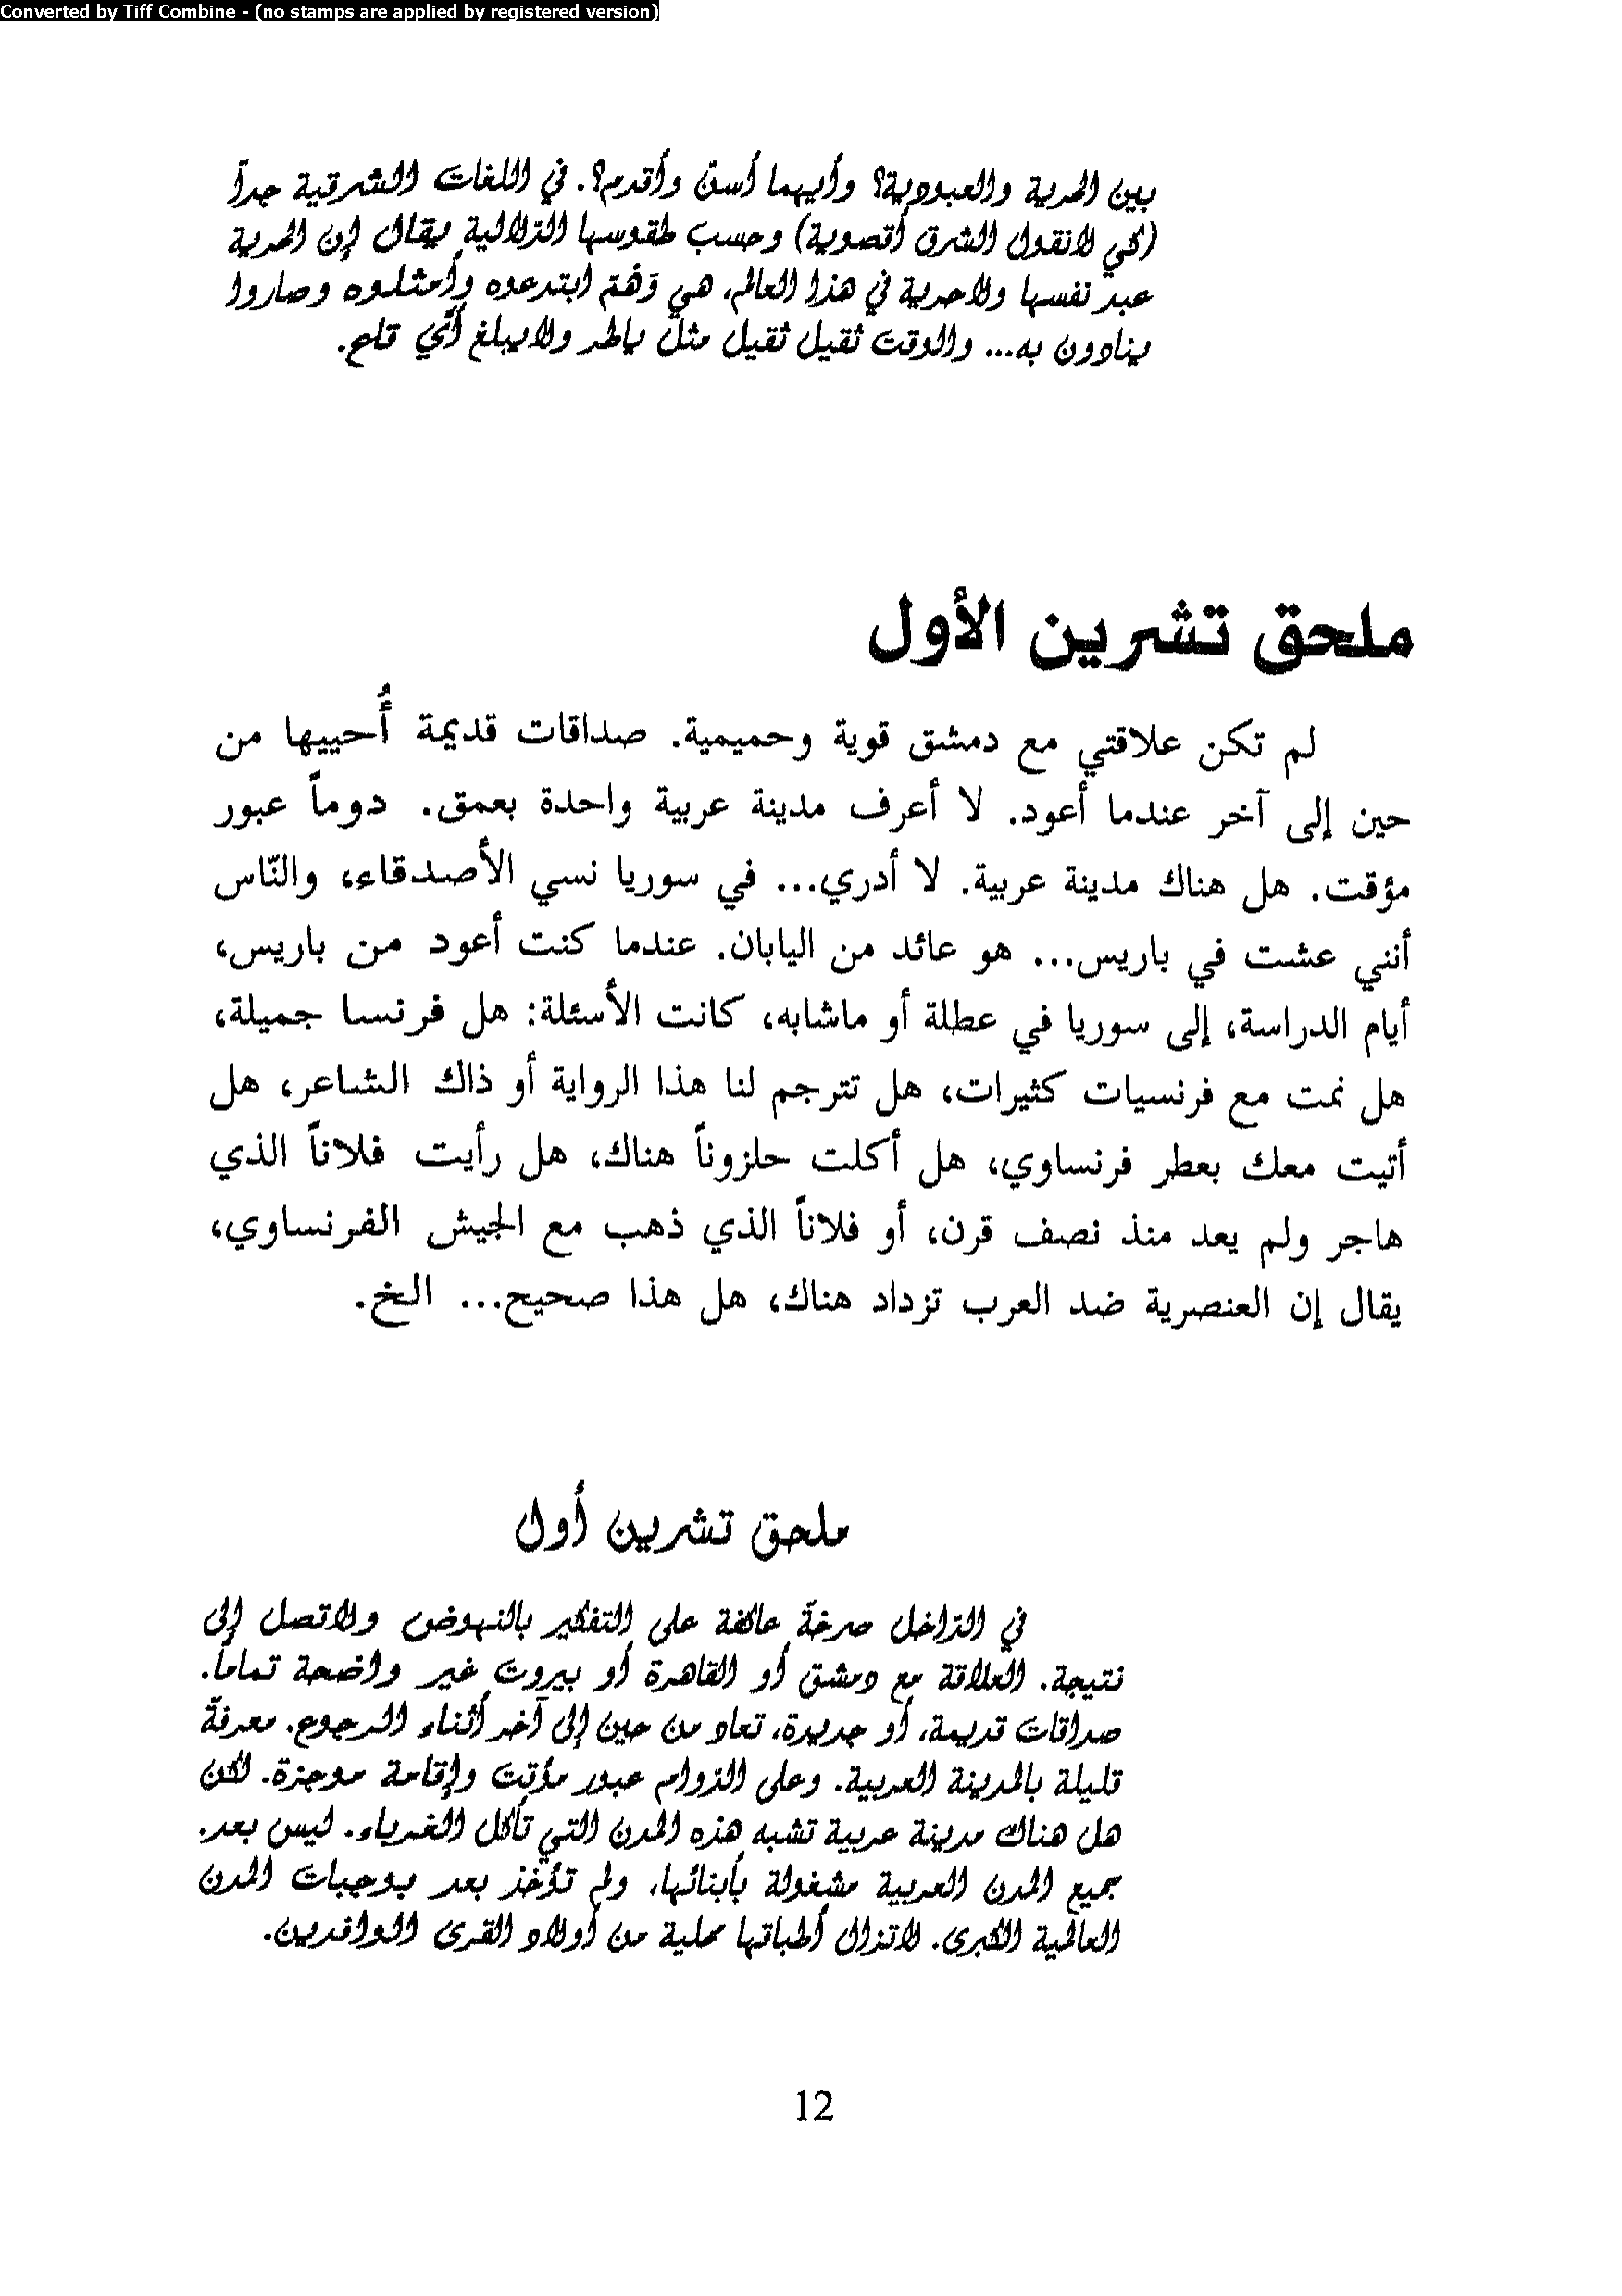 Converted by Tiff Combine - (no stamps are applied by registered version)
بين الحرية والعبودية؟ وأيهما أسنّ وأقدم؟. في اللغات الشرقية جداً
(كي لانقول الشرق أقصوية) وحسب طقوسها الدلالية يقال إن الحرية
عبد نفسها ولاحرية في هذا العالم، هي وَهْمٌ ابتدعوه وأمثلوه وصاروا
ينادون به... والوقت ثقيل ثقيل مثل ياطر ولايبلغ أيّ قاع.
ملحق تشرين الأول
لم تكن علاقتي مع دمشق قوية وحميمية. صداقات قديمة أُحييها من
حين إلى آخر عندما أعود. لا أعرف مدينة عربية واحدة بعمق. دوماً عبور
مؤقت. هل هناك مدينة عربية. لا أدري... في سوريا نسي الأصدقاء، والنّاس
أنني عشت في باريس... هو عائد من اليابان. عندما كنت أعود من باريس،
أيام الدراسة، إلى سوريا في عطلة أو ماشابه، كانت الأسئلة: هل فرنسا جميلة،
هل نمت مع فرنسيات كثيرات، هل تترجم لنا هذا الرواية أو ذاك الشاعر، هل
أتيت معك بعطر فرنساوي، هل أكلت حلزوناً هناك، هل رأيت فلاناً الذي
هاجر ولم يعد منذ نصف قرن، أو فلاناً الذي ذهب مع الجيش الفرنساوي،
يقال إن العنصرية ضد العرب تزداد هناك، هل هذا صحيح... الخ.
ملحق تشرين أول
في الداخل صرخةٌ عاكفة على التفكير بالنهوض ولاتصل إلى
نتيجة. العلاقة مع دمشق أو القاهرة أو بيروت غير واضحة تماماً.
صداقات قديمة، أو جديدة، تعاد من حين إلى آخر أثناء الرجوع. معرفةٌ
قليلة بالمدينة العربية. وعلى الدوام عبور مؤقت وإقامة موجزة. لكن
هل هناك مدينة عربية تشبه هذه المدن التي تأكل الغرباء. ليس بعد.
جميع المدن العربية مشغولة بأبنائها، ولم تؤخذ بعد بوجبات المدن
العالمية الكبرى. لاتزال أطباقها محلية من أولاد القرى الوافدين.
12